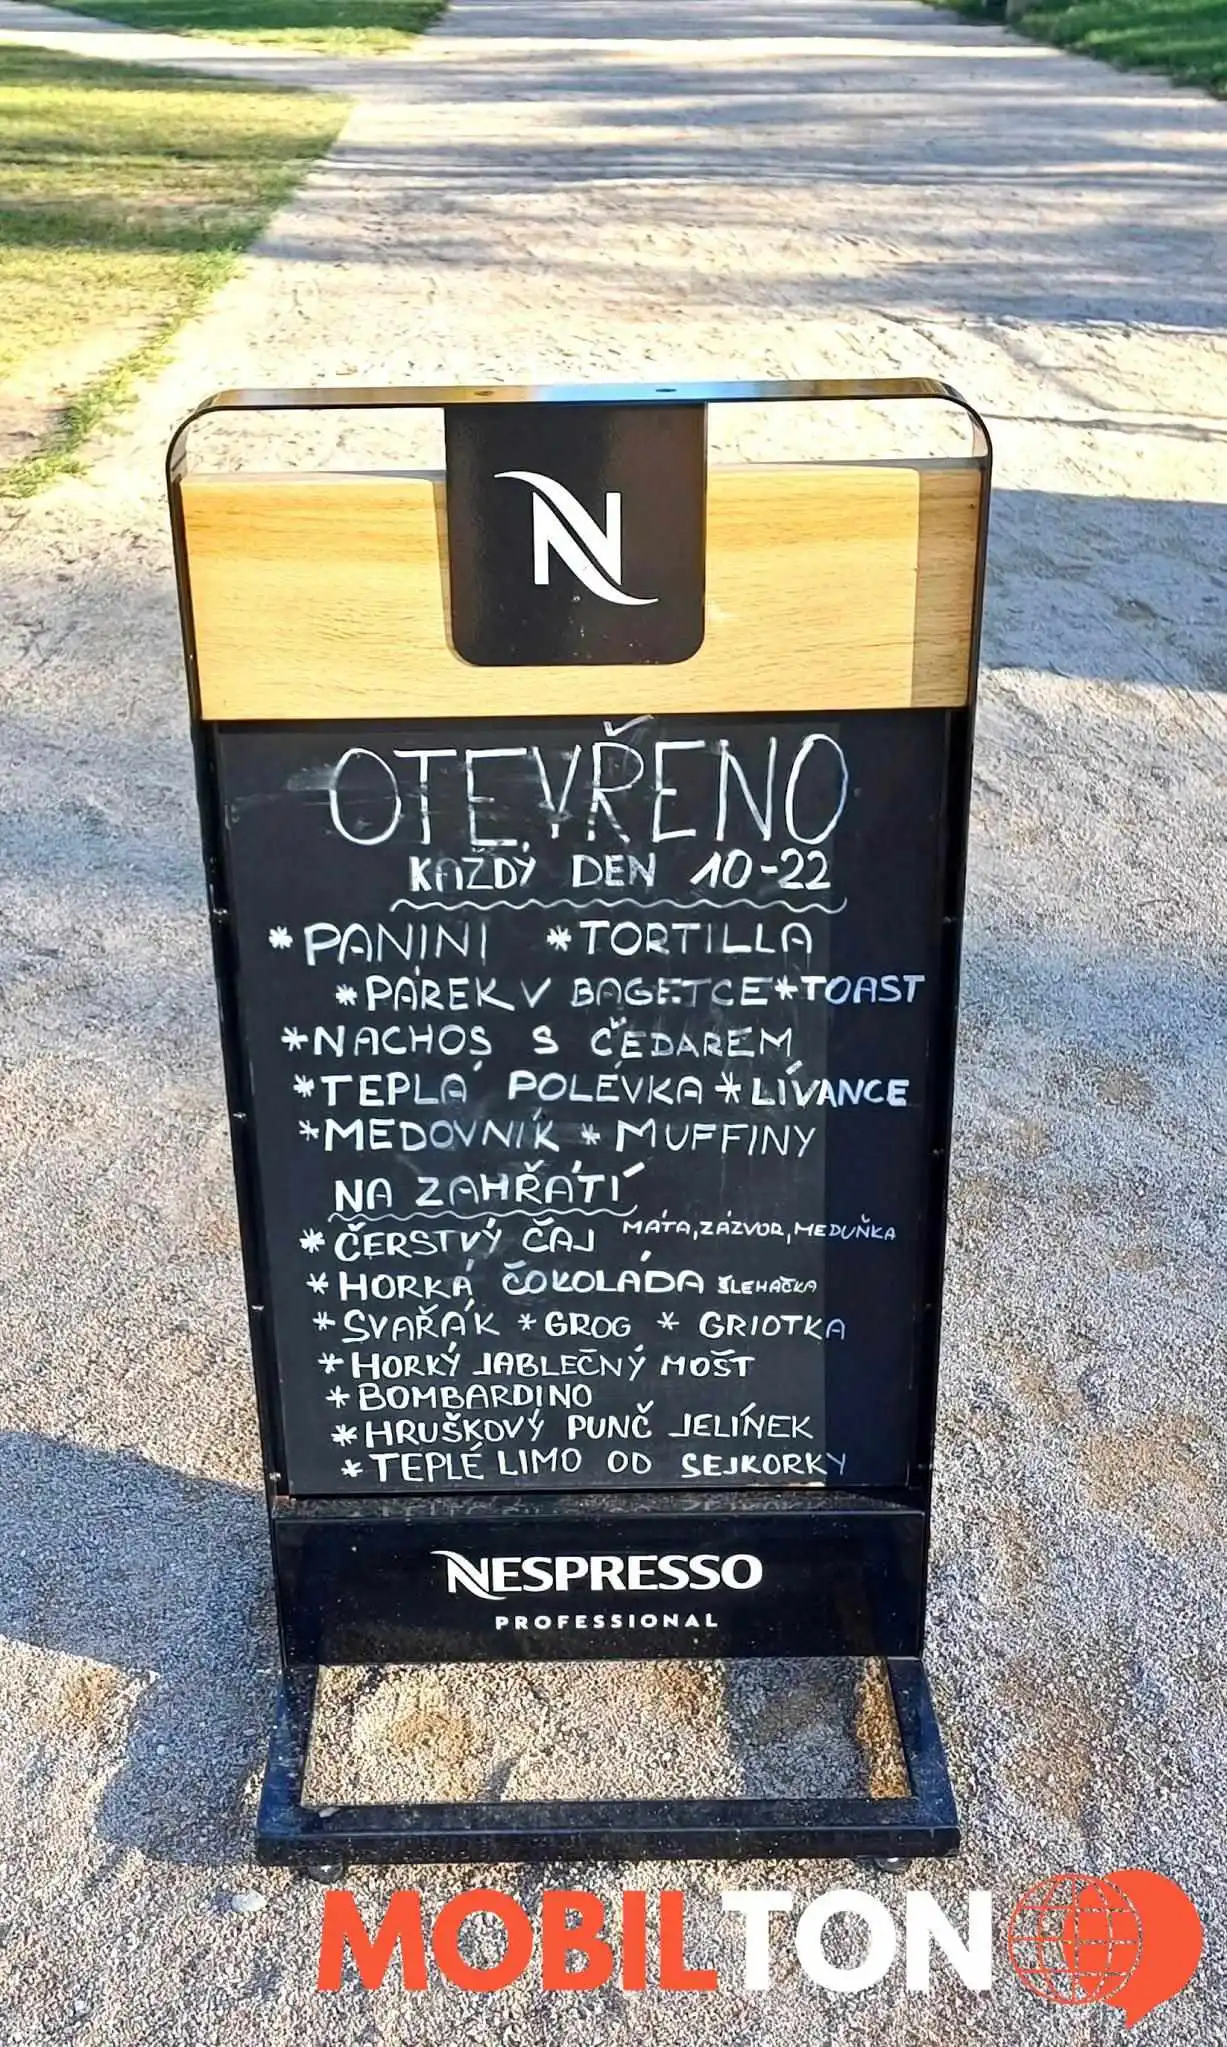 N
OTEVŘENO
KAŽDÝ DEN 10-22
* PANINI * TORTILLA
* PÁREK V BAGETCE * TOAST
* NACHOS S ČEDAREM
* TEPLÁ POLÉVKA * LÍVANCE
* MEDOVNÍK * MUFFINY
NA ZAHŘÁTÍ
* ČERSTVÝ ČAJ MÁTA, ZÁZVOR, MEDUŇKA
* HORKÁ ČOKOLÁDA ŠLEHAČKA
* SVAŘÁK * GROG * GRIOTKA
* HORKÝ JABLEČNÝ MOŠT
* BOMBARDINO
* HRUŠKOVÝ PUNČ JELÍNEK
* TEPLÉ LIMO OD SEJKORKY
NESPRESSO
PROFESSIONAL
MOBILTON